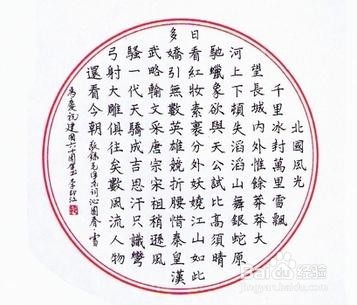 北國風光
千里冰封萬里雪飄
望長城內外惟餘莽莽大
河上下頓失滔滔山舞銀蛇原
馳蠟象欲與天公試比高須晴
日看紅妝素裹分外妖嬈江山如此
多嬌引無數英雄競折腰惜秦皇漢
武略輸文采唐宗宋祖稍遜風
騷一代天驕成吉思汗只識彎
弓射大雕俱往矣數風流人物
還看今朝 敬錄毛澤東詞沁園春雪
為慶祝建國六十周年